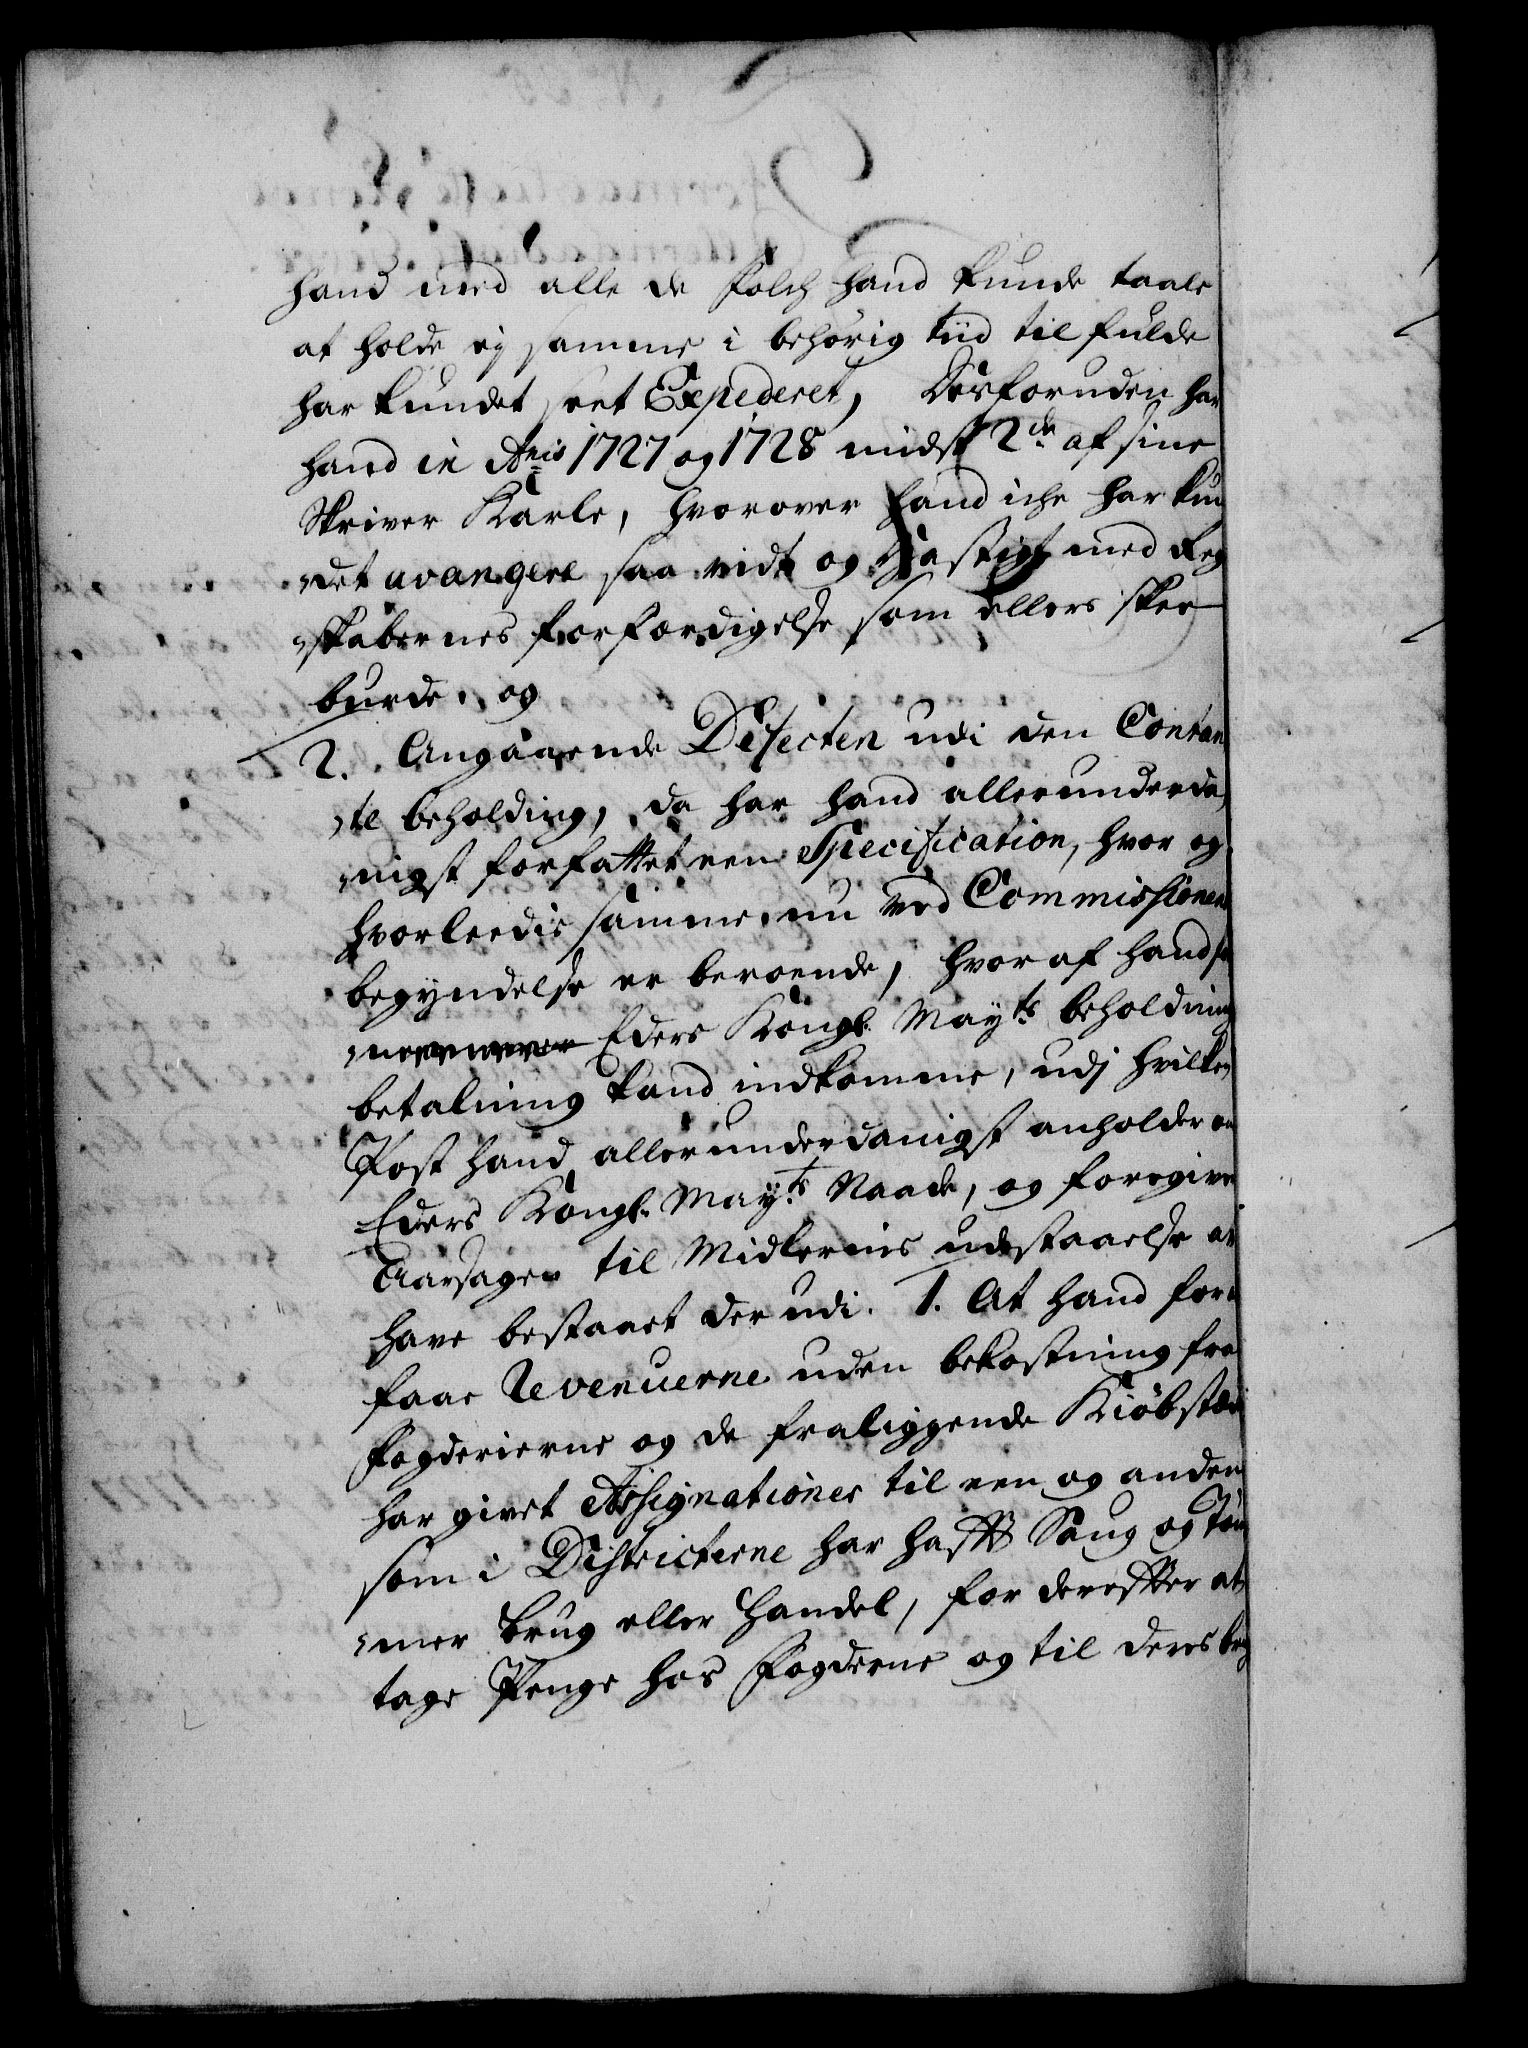 hand med alle de Folch hand kunde taale
at holde ej samme i behörig tiid til fulde
har kundet seet Expederet, Desforuden har
hand in Anis 1727 og 1728 midst 2de af sine
Skriver Karle, hvorover hand iche har kun
det avangere saa vidt og Hastigt med Reg
skabernes forfærdigelse som ellers skee
burde. og
2. Angaaende Defecten udi den Contan
te beholding, da har hand allerunderda
nigst forfattet een Specification, hvor og
hvorleedis samme nu ved Commissionens
begyndelse er beroende, hvoraf hand
Eders Kongl. Mayts beholdning
betalning kand indkomme, udj hvilken
Post hand allerunderdanigst anholder om
Eders Kongl. Mayts Naade, og foregiver
Aarsagen til Midlernes udestaaelse at
have bestaaet der udi. 1. At hand for at
faae Revenuerne uden bekostning fra
Fogderierne og de fraliggende Kiöbstæder
har givet Assignationer til een og anden
som i Districterne har hafft Saug og Töm
mer brug eller Handel, for derefter at
tage Penge hos Fogderne og til deres brug